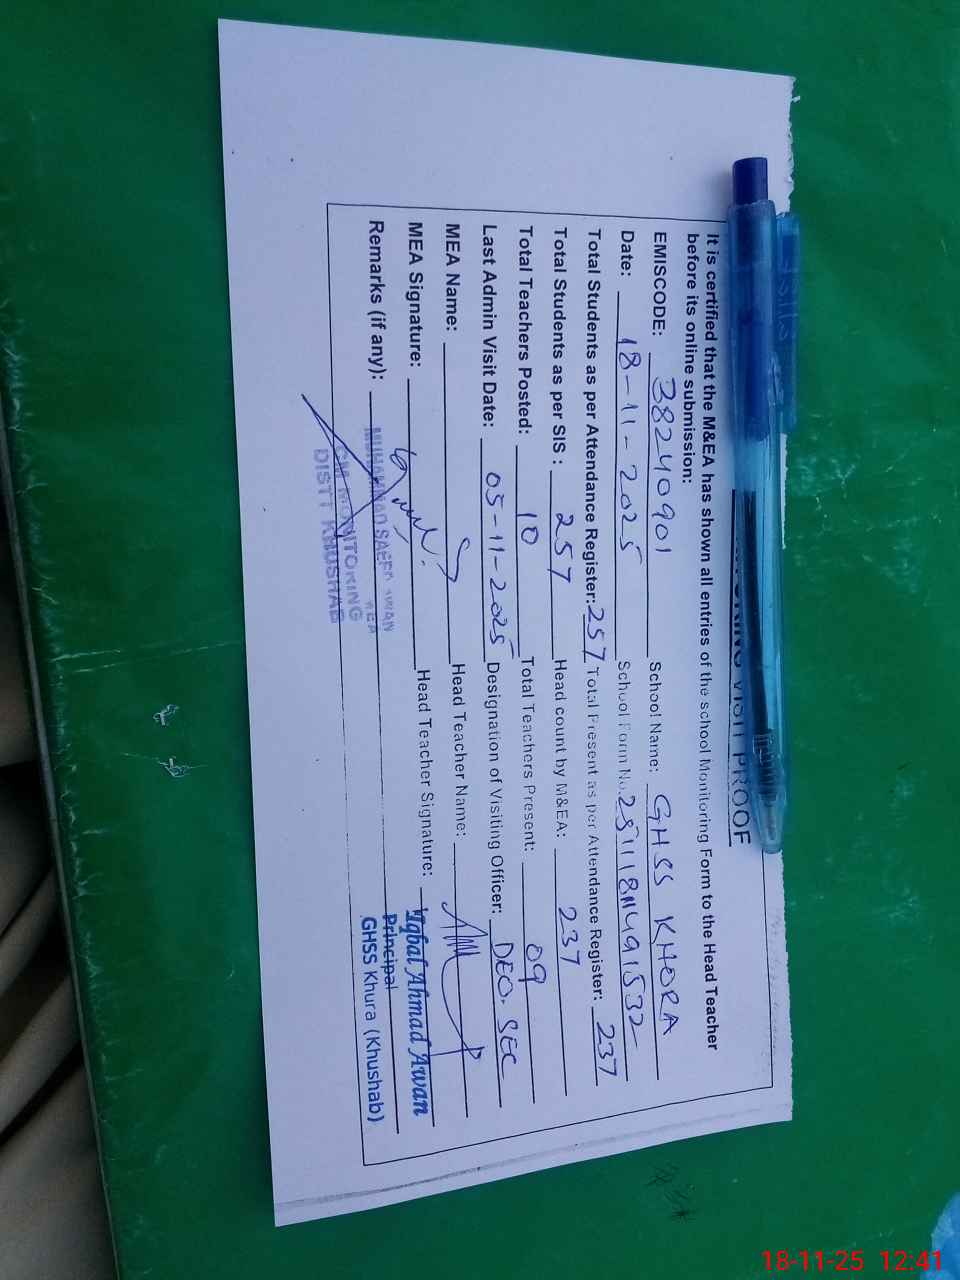 VISIT PROOF
It is certified that the M&EA has shown all entries of the school Monitoring Form to the Head Teacher
before its online submission:
EMISCODE: 38240901 School Name: GHSS KHORA
Date: 18-11-2025 School Form No.
Total Students as per Attendance Register: 257 Total Present as per Attendance Register: 237
Total Students as per SIS : 257 Head count by M&EA: 237
Total Teachers Posted: 10 Total Teachers Present: 09
Last Admin Visit Date: 05-11-2025 Designation of Visiting Officer: DEO. SEC
MEA Name: Head Teacher Name:
MEA Signature: Head Teacher Signature: Iqbal Ahmad Awan
Remarks (if any): Principal
GHSS Khura (Khushab)
MUHAMMAD SAEED AWAN
MEA
CM MONITORING
DISTT KHUSHAB
18-11-25 12:41